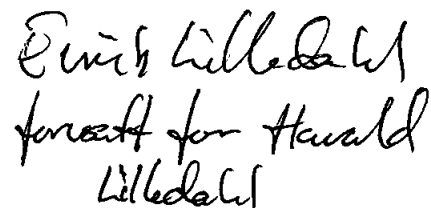 Erich Lilledahl
forvatt for Harald
Lilledahl